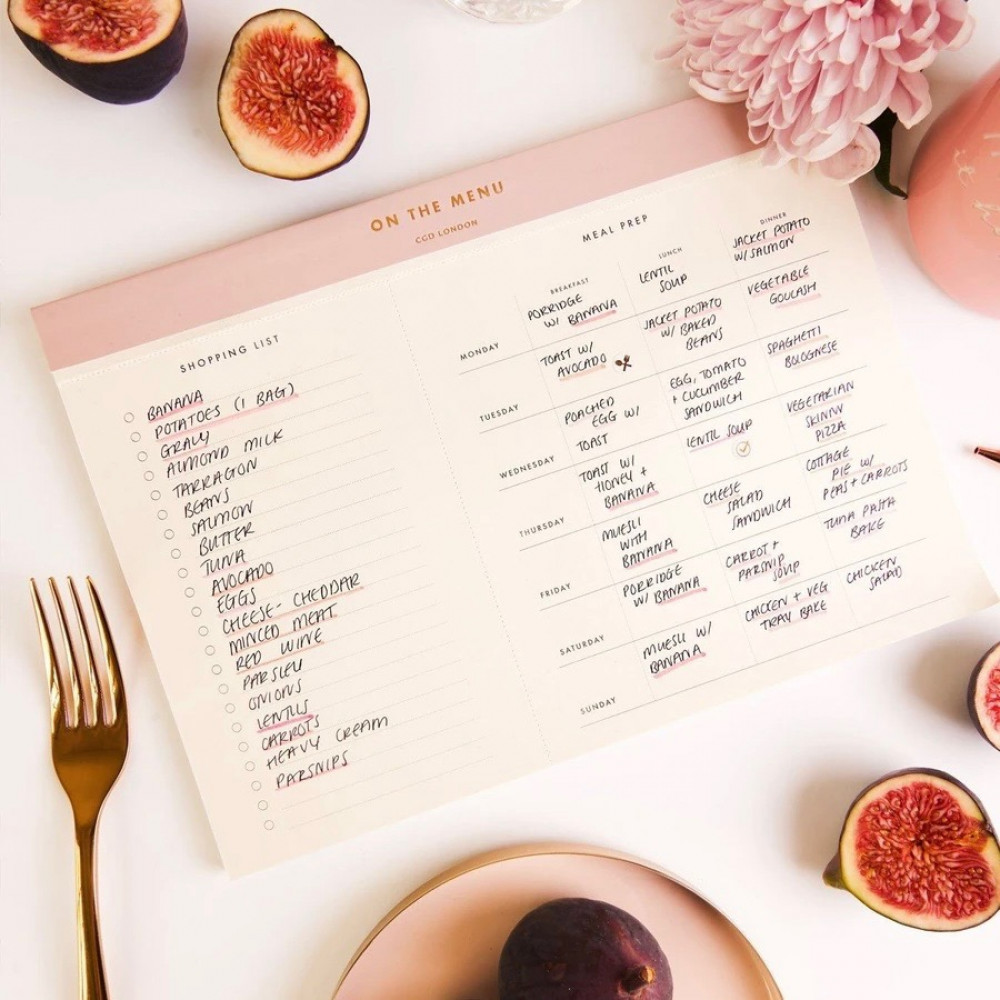 ON THE MENU
CGD LONDON
SHOPPING LIST
BANANA
POTATOES (1 BAG)
GRAVY
ALMOND MILK
TARRAGON
BEANS
SALMON
BUTTER
TUNA
AVOCADO
EGGS
CHEESE - CHEDDAR
MINCED MEAT
RED WINE
PARSLEY
ONIONS
LENTILS
CARROTS
HEAVY CREAM
PARSNIPS
MEAL PREP
BREAKFAST
LUNCH
DINNER
MONDAY
PORRIDGE
W/ BANANA
LENTIL
SOUP
JACKET POTATO
W/ SALMON
TUESDAY
TOAST W/
AVOCADO
JACKET POTATO
W/ BAKED
BEANS
VEGETABLE
GOULASH
WEDNESDAY
POACHED
EGG W/
TOAST
EGG, TOMATO
+ CUCUMBER
SANDWICH
SPAGHETTI
BOLOGNESE
THURSDAY
TOAST W/
HONEY +
BANANA
LENTIL SOUP
VEGETARIAN
SKINNY
PIZZA
FRIDAY
MUESLI
WITH
BANANA
CHEESE
SALAD
SANDWICH
COTTAGE
PIE W/
PEAS + CARROTS
SATURDAY
PORRIDGE
W/ BANANA
CARROT +
PARSNIP
SOUP
TUNA PASTA
BAKE
SUNDAY
MUESLI W/
BANANA
CHICKEN + VEG
TRAY BAKE
CHICKEN
SALAD